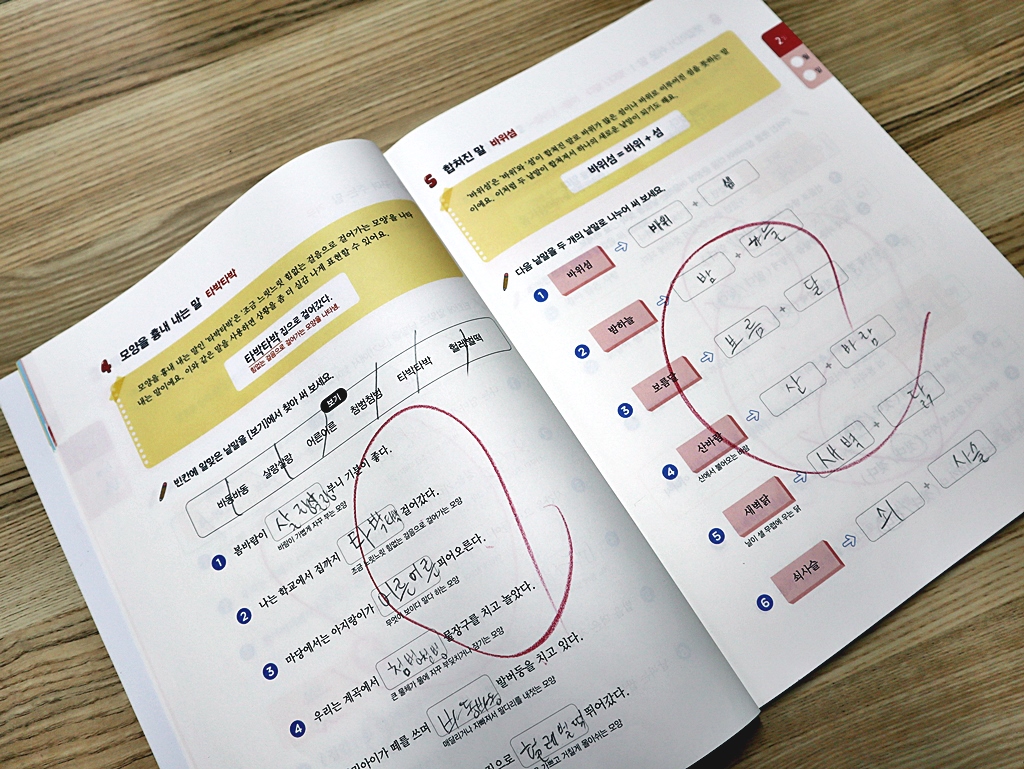 4 모양을 흉내 내는 말 타박타박
모양을 흉내 내는 말인 '타박타박'은 '조금 느릿느릿 힘없는 걸음으로 걸어가는 모양'을 나타
내는 말이에요. 이와 같은 말을 사용하면 상황을 좀 더 실감 나게 표현할 수 있어요.
타박타박 집으로 걸어갔다.
힘없는 걸음으로 걸어가는 모양을 나타냄.
빈칸에 알맞은 낱말을 [보기]에서 찾아 써 보세요.
보기
바동바동 살랑살랑 어른어른 첨벙첨벙 타박타박 헐레벌떡
1 봄바람이 살랑살랑 부니 기분이 좋다.
바람이 가볍게 자꾸 부는 모양
2 나는 학교에서 집까지 타박타박 걸어갔다.
조금 느릿느릿 힘없는 걸음으로 걸어가는 모양
3 마당에서는 아지랑이가 어른어른 피어오른다.
무엇이 보이다 말다 하는 모양
4 우리는 계곡에서 첨벙첨벙 물장구를 치고 놀았다.
큰 물체가 물에 자꾸 부딪치거나 잠기는 모양
아이가 떼를 쓰며 바동바동 발버둥을 치고 있다.
매달리거나 자빠져서 팔다리를 내젓는 모양
집으로 헐레벌떡 뛰어갔다.
가쁘고 거칠게 몰아쉬는 모양
2
5 합쳐진 말 바위섬
'바위섬'은 '바위'와 '섬'이 합쳐진 말로 바위가 많은 섬이나 바위로 이루어진 섬을 뜻하는 말
이에요. 이처럼 두 낱말이 합쳐져서 하나의 새로운 낱말이 되기도 해요.
바위섬 = 바위 + 섬
다음 낱말을 두 개의 낱말로 나누어 써 보세요.
1 바위섬 ⇨ 바위 + 섬
2 밤하늘 ⇨ 밤 + 하늘
3 보름달 ⇨ 보름 + 달
4 산바람 ⇨ 산 + 바람
산에서 불어오는 바람
5 새벽닭 ⇨ 새벽 + 닭
날이 샐 무렵에 우는 닭
6 쇠사슬 ⇨ 쇠 + 사슬